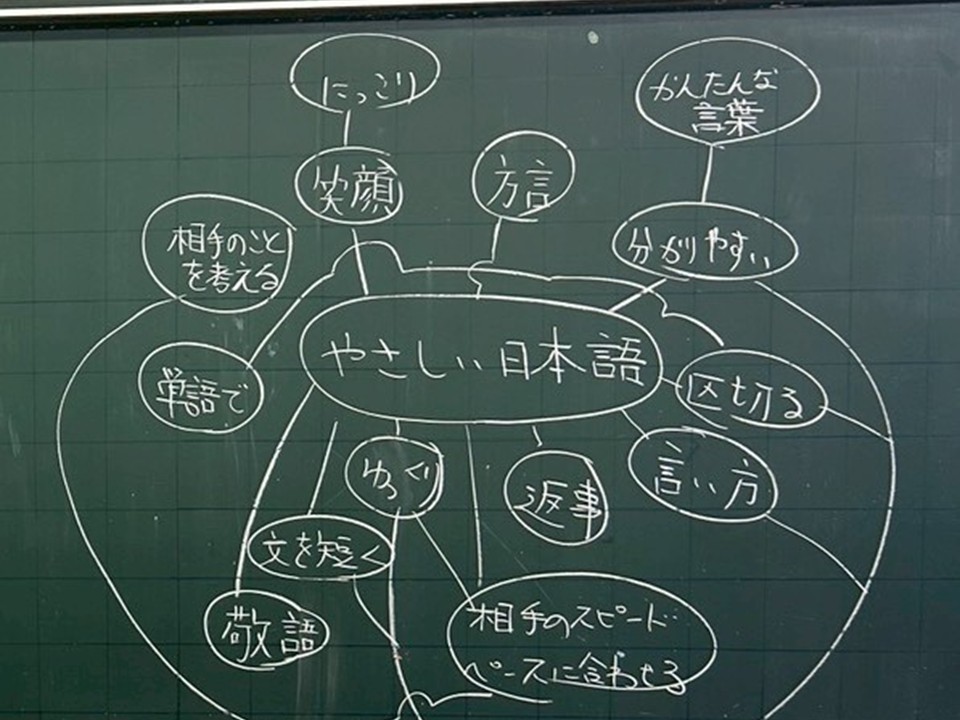 にっこり
かんたんな
言葉
笑顔
方言
相手のこと
を考える
分かりやすい
やさしい日本語
単語で
区切る
ゆっくり
返事
言い方
文を短く
敬語
相手のスピード・
ペースに合わせる